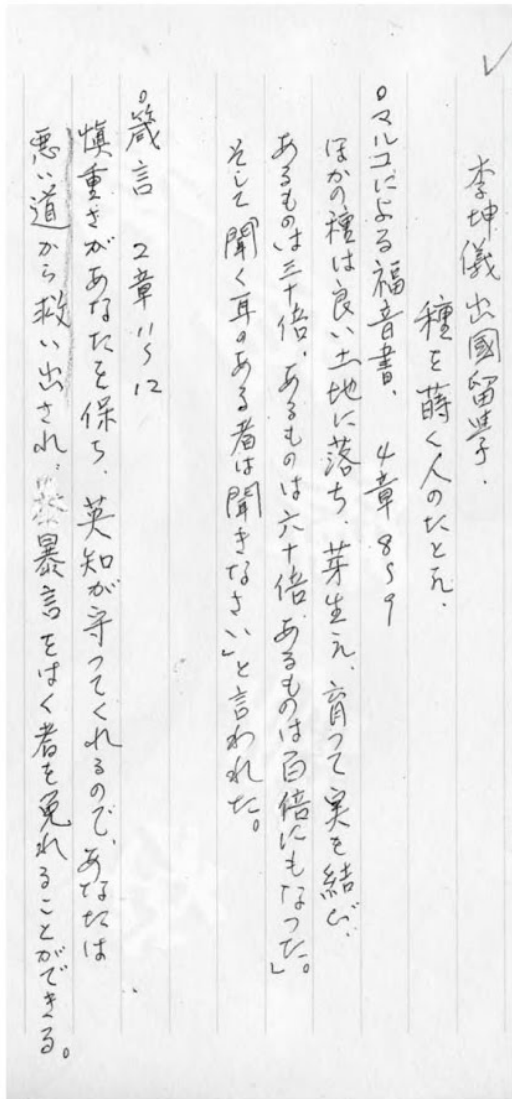 李坤儀出國留学.
種を蒔く人のたとえ.
○マルコによる福音書、 4章8〜9
ほかの種は良い土地に落ち、芽生え、育って実を結び、
あるものは三十倍、あるものは六十倍、あるものは百倍にもなった」。
そして聞く耳のある者は聞きなさい」と言われた。
○箴言 2章11〜12
慎重さがあなたを保ち、英知が守ってくれるので、あなたは
悪い道から救い出され、暴言をはく者を免れることができる。